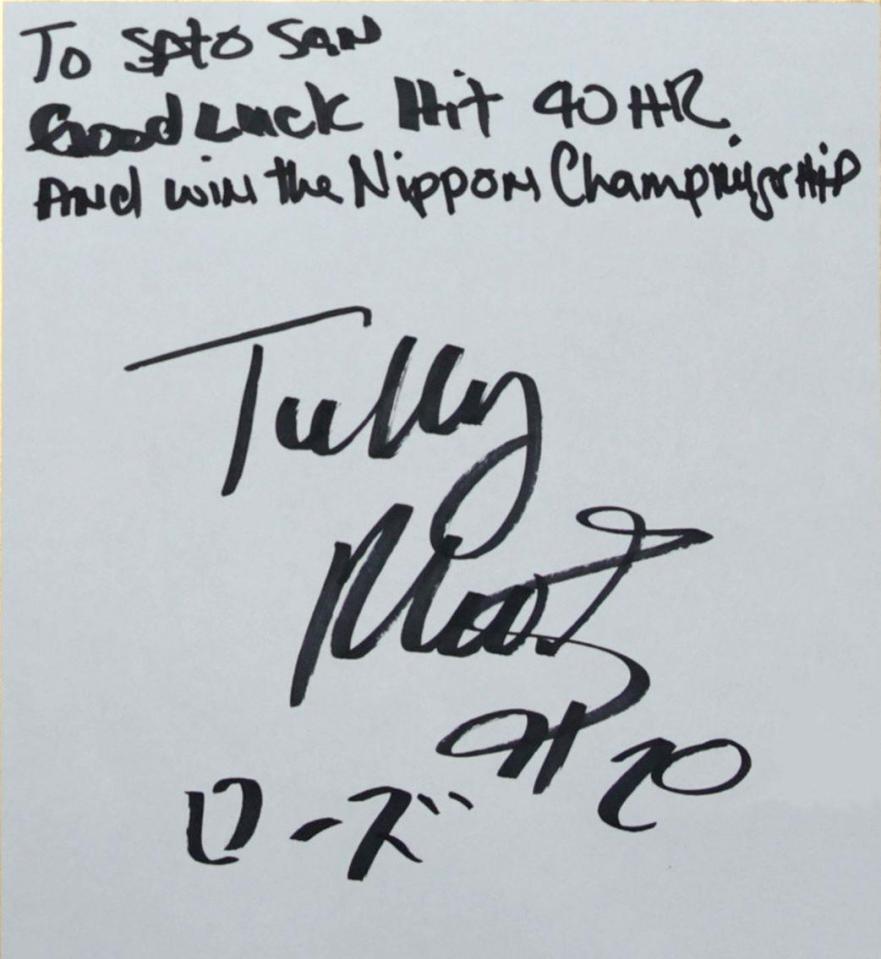 To SAto SAN
Good Luck Hit 40 HR.
ANd wiN the NippoN ChampNigsHiP
Tuffy
Rhodes
#20
ローズ